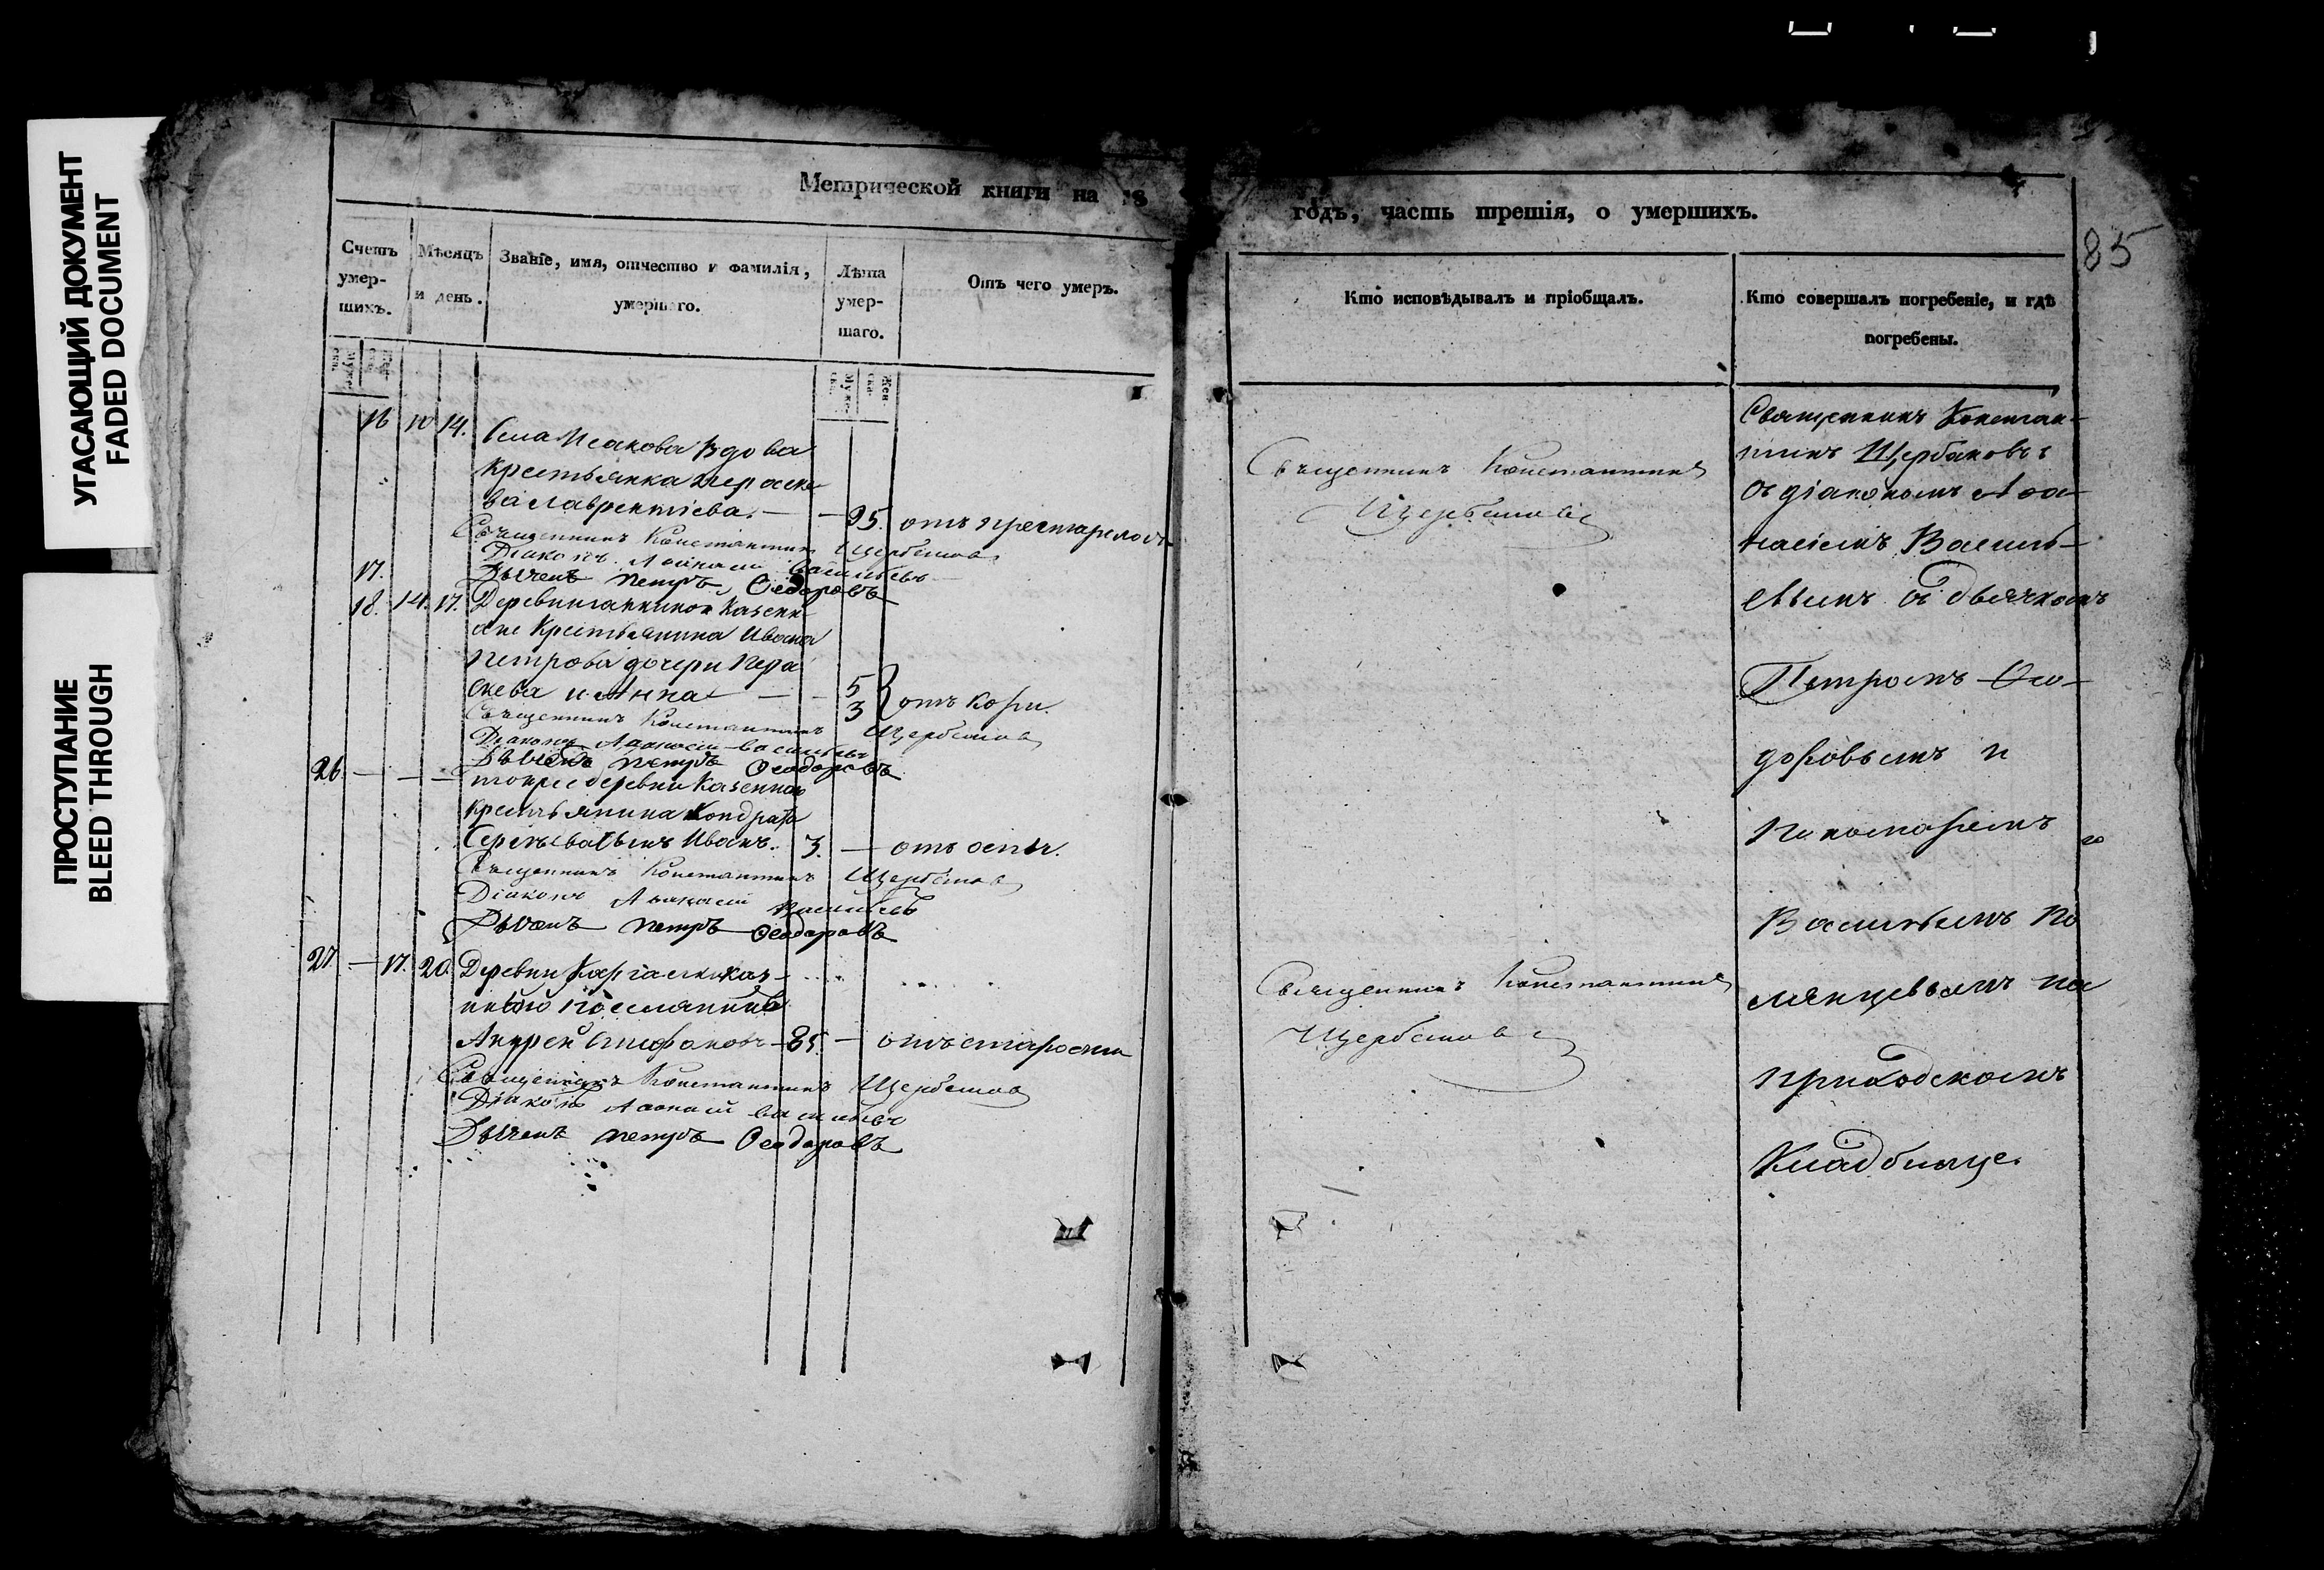 УГАСАЮЩИЙ ДОКУМЕНТ
FADED DOCUMENT
ПРОСТУПАНИЕ
BLEED THROUGH
Метрической книги на 18
Счетъ умер-шихъ.
Мѣсяцъ и день.
Званіе, имя, отчество и фамилія, умершаго.
Лѣта умер-шаго.
Отъ чего умеръ.
16 10 14. Села Исакова вдова
крестьянка Параске
ва Лаврентіева. — — 95. отъ престарелости
Священникъ Константинъ Щербаковъ
Діаконъ Афанасій Васильевъ
17. Дьячекъ Петръ Ѳеодоровъ
18. 14. 17. Деревни казен
крестьянина Ивана
Петрова дочери Пара
скева и Анна — — 5 3 отъ кори.
Священникъ Константинъ Щербаковъ
Діаконъ Афанасій Васильевъ
Дьячекъ Петръ Ѳеодоровъ
26. — — — тойже деревни казеннаго
крестьянина Кондрата
сынъ Иванъ. 3. — отъ оспы.
Священникъ Константинъ Щербаковъ
Діаконъ Афанасій Васильевъ
Дьячекъ Петръ Ѳеодоровъ
27. — 17. 20. Деревни каз
Андрей — 85. — отъ старости
Священникъ Константинъ Щербаковъ
Діаконъ Афанасій Васильевъ
Дьячекъ Петръ Ѳеодоровъ
годъ, часть третія, о умершихъ.
85
Кто исповѣдывалъ и пріобщалъ.
Кто совершалъ погребеніе, и гдѣ
погребены.
Священникъ Константинъ
Щербаковъ
Священникъ Константинъ
Щербаковъ
Священникъ Констан-
тинъ Щербаковъ
съ діакономъ Афа-
насіемъ Василь-
евымъ съ дьячкомъ
Петромъ Ѳео-
доровымъ и
пономаремъ
Васильемъ По
мянцевымъ на
приходскомъ
кладбище.